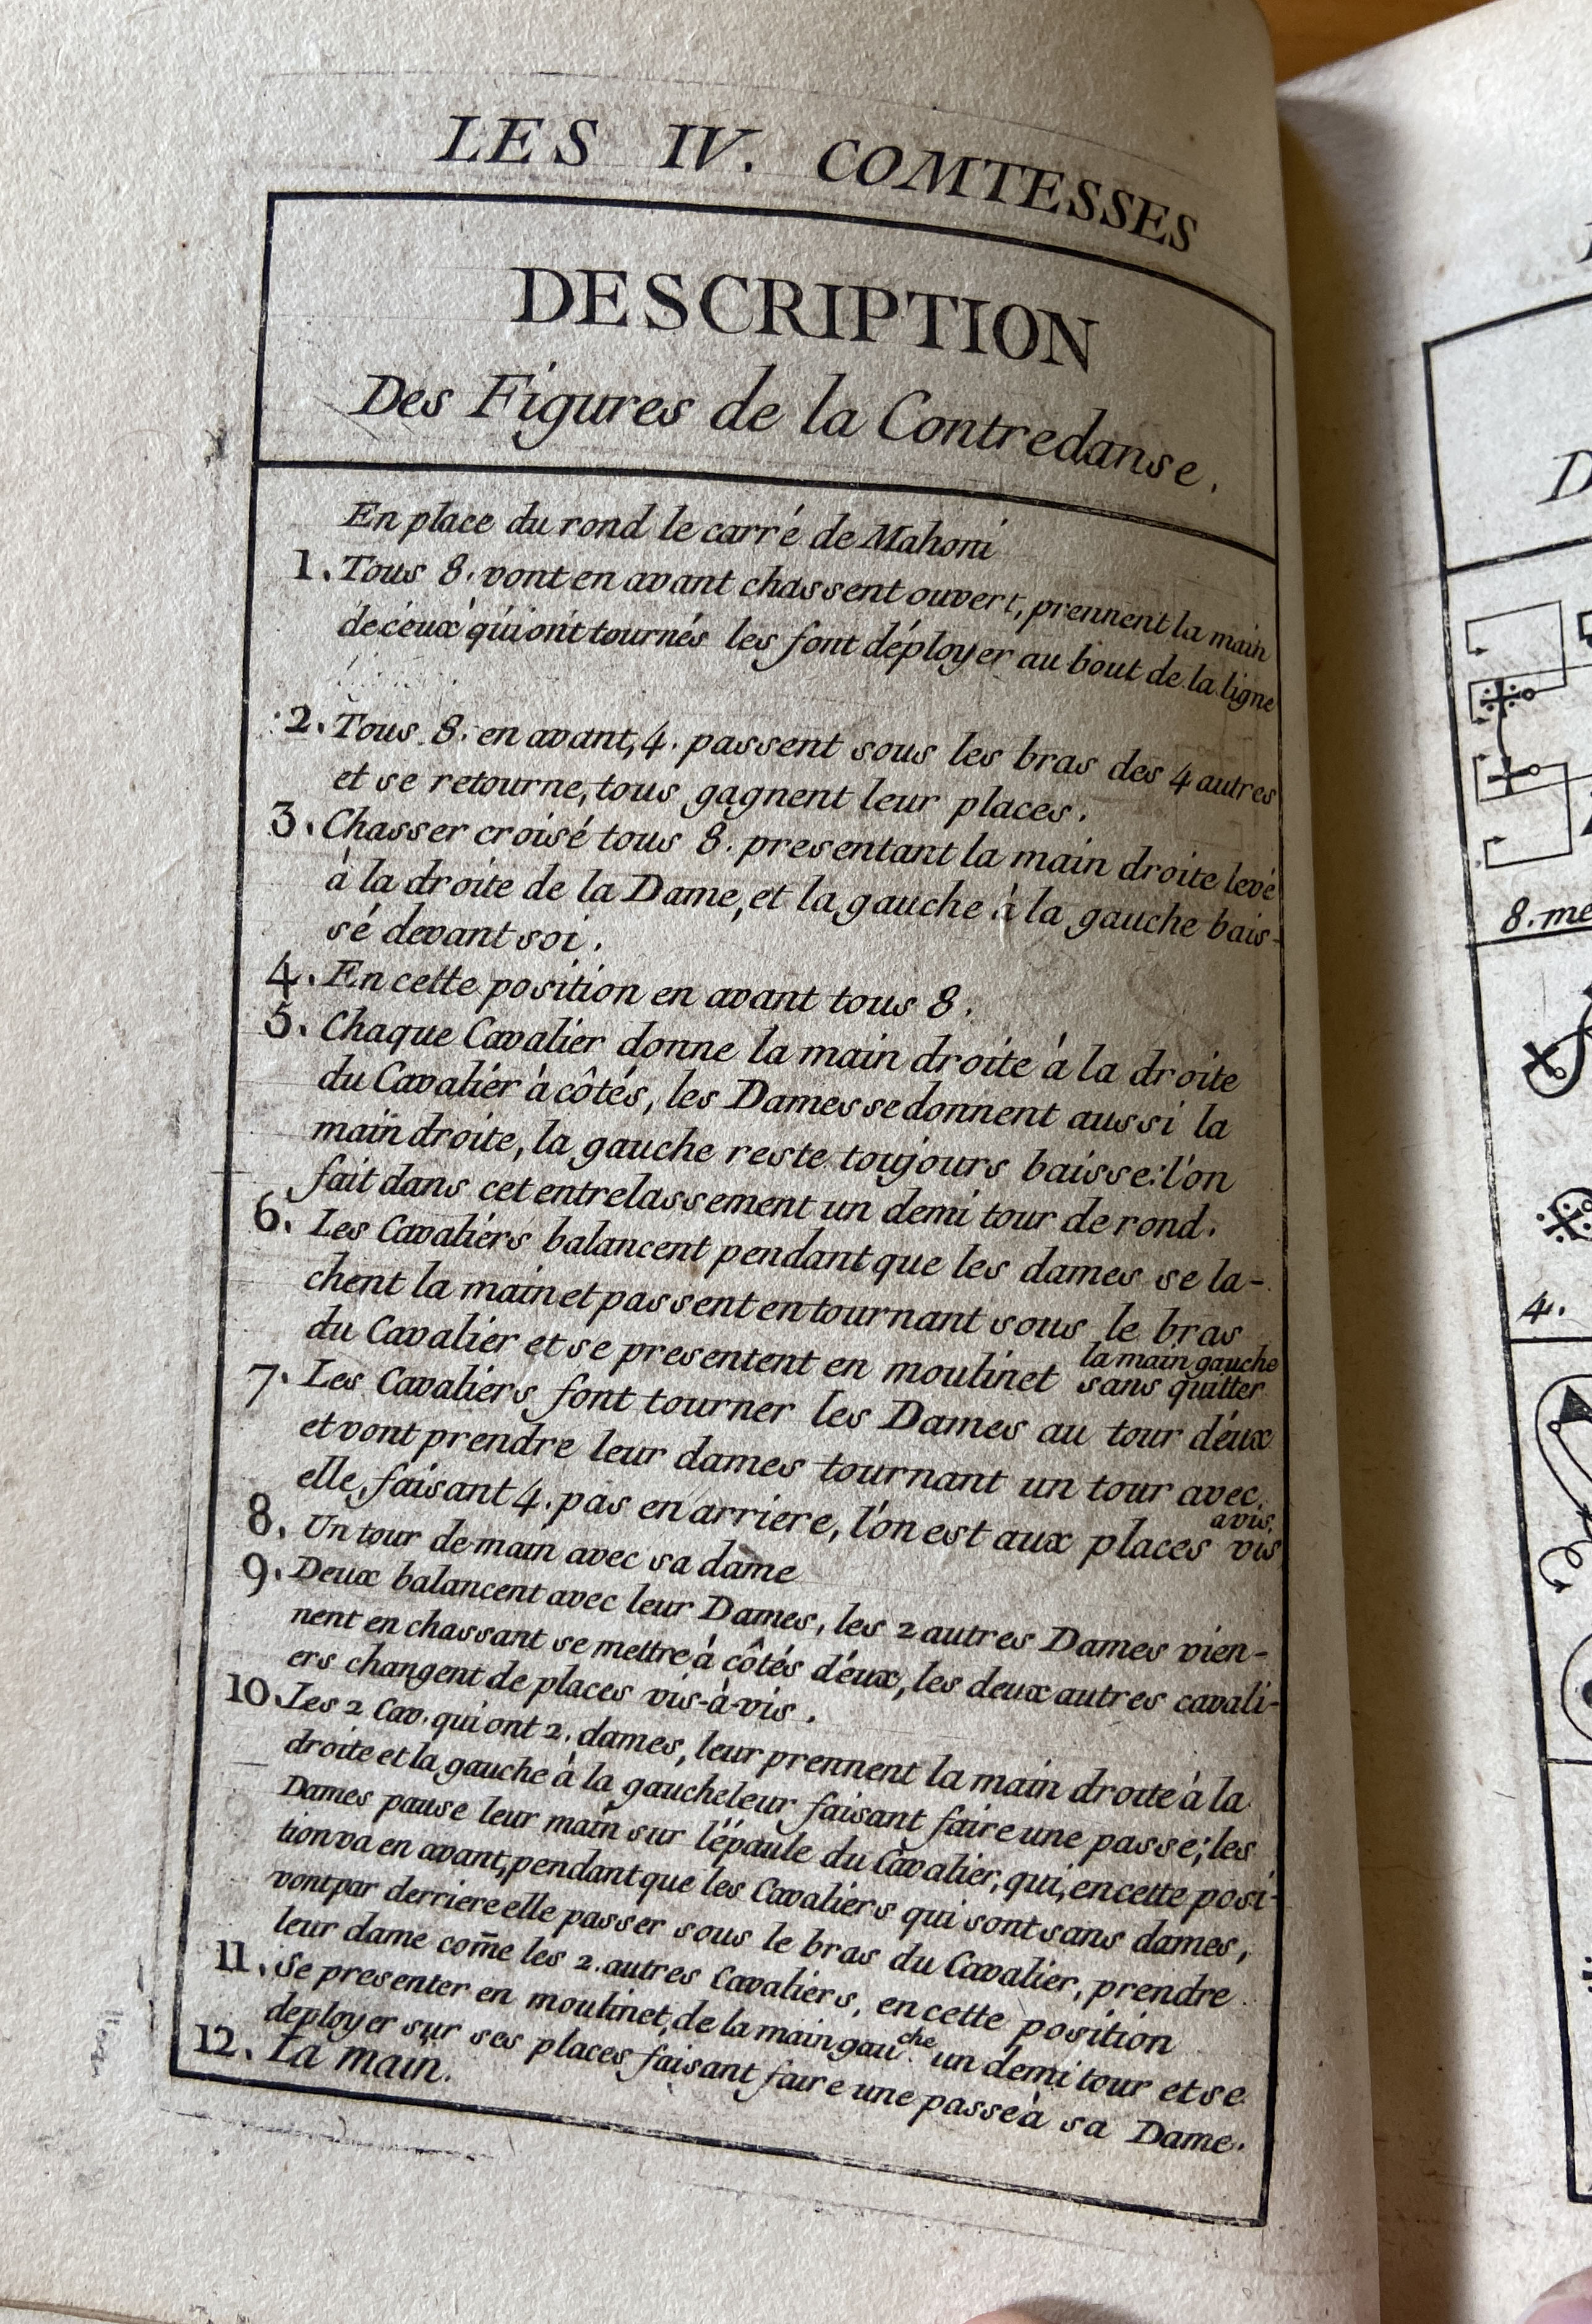 LES IV. COMTESSES
DESCRIPTION
Des Figures de la Contredanse.
En place du rond le carré de Mahoni
1. Tous 8. vont en avant chassent ouvert, prennent la main
de céux qui ont tournés les font déployer au bout de la ligne
2. Tous 8. en avant, 4. passent sous les bras des 4 autres
et se retourne, tous gagnent leur places.
3. Chasser croisé tous 8. presentant la main droite levé
à la droite de la Dame, et la gauche à la gauche bais-
sé devant soi.
4. En cette position en avant tous 8.
5. Chaque Cavalier donne la main droite à la droite
du Cavalier à côtés, les Dames se donnent aussi la
main droite, la gauche reste toujours baisse: l'on
fait dans cet entrelassement un demi tour de rond.
6. Les Cavaliers balancent pendant que les dames se la-
chent la main et passent en tournant sous le bras
du Cavalier et se presentent en moulinet sans quitter la main gauche
7. Les Cavaliers font tourner les Dames au tour d'eux
et vont prendre leur dames tournant un tour avec
elle, faisant 4. pas en arriere, l'on est aux places vis avis.
8. Un tour de main avec sa dame
9. Deux balancent avec leur Dames, les 2 autres Dames vien-
nent en chassant se mettre à côtés d'eux, les deux autres cavali-
ers changent de places vis-à-vis.
10. Les 2 Cav. qui ont 2. dames, leur prennent la main droite à la
droite et la gauche à la gauche leur faisant faire une passe; les
Dames pause leur main sur l'épaule du Cavalier, qui, en cette posi-
tion va en avant, pendant que les Cavaliers qui sont sans dames,
vont par derriere elle passer sous le bras du Cavalier, prendre
leur dame com̄e les 2. autres Cavaliers, en cette position
11. Se presenter en moulinet, de la main gauche un demi tour et se
deployer sur ses places faisant faire une passe à sa Dame.
12. La main.
D
8. me
4.